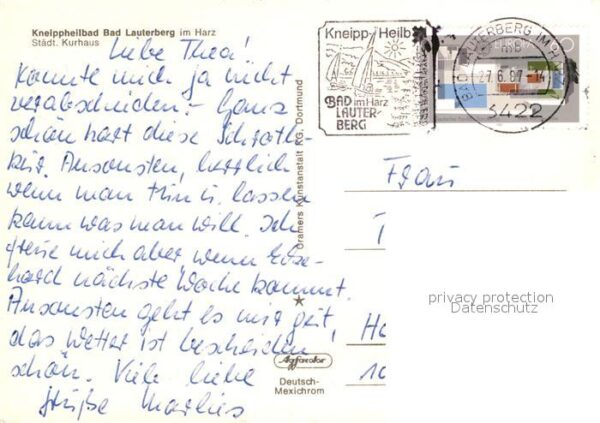 Kneippheilbad Bad Lauterberg im Harz
Städt. Kurhaus
Liebe Thea!
Konnte mich ja nicht
verabschieden. Ganz
schön hart diese Schroth-
kur. Ansonsten, herrlich
wenn man tun u. lassen
kann was man will. Ich
freue mich aber wenn
hard nächste Woche kommt.
Ansonsten geht es mir gut,
das Wetter ist bescheiden
schön. Viele liebe
Grüße Marlies
Cramers Kunstanstalt KG, Dortmund
Agfacolor
Deutsch-
Mexichrom
Kneipp-Heilb
BAD im Harz
LAUTER-
BERG
BAD LAUTERBERG IM HARZ
27.6.87-14
3422
Frau
T
Ha
10
privacy protection
Datenschutz